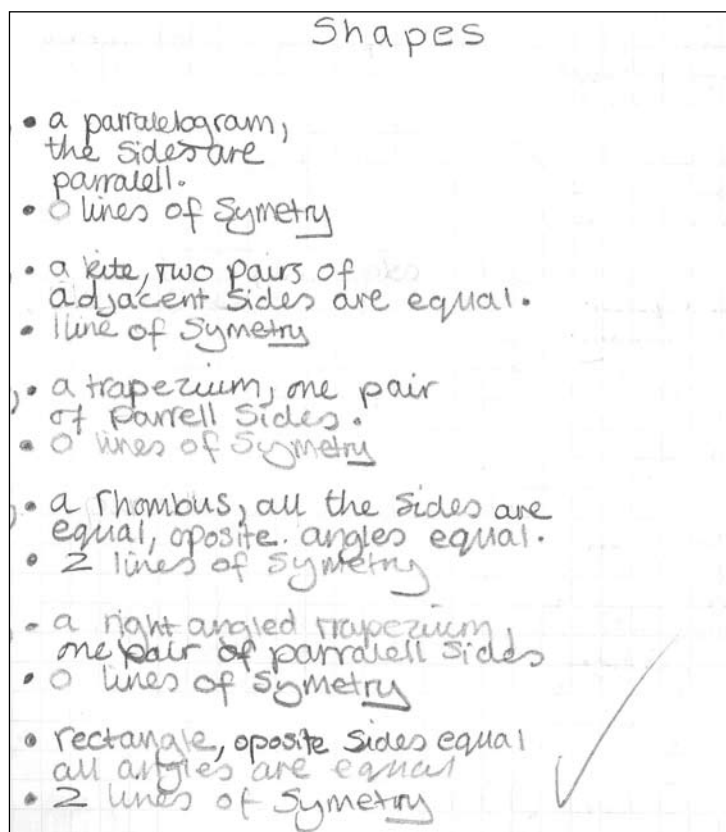 Shapes
• a parralelogram,
the sides are
parralell.
• 0 lines of Symetry
• a kite, two pairs of
adjacent sides are equal.
• 1 line of Symetry
• a trapezium, one pair
of parrell sides.
• 0 lines of Symetry
• a rhombus, all the sides are
equal, oposite. angles equal.
• 2 lines of Symetry
• a right angled trapezium,
one pair of parralell sides
• 0 lines of Symetry
• rectangle, oposite sides equal
all angles are equal
• 2 lines of Symetry